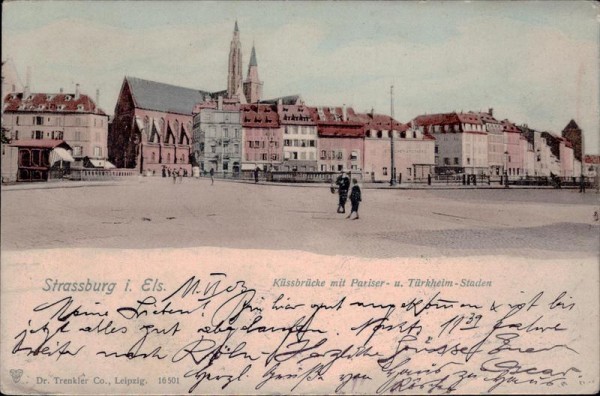 Strassburg i. Els.
Küssbrücke mit Pariser- u. Türkheim-Staden
Meine Lieben! Bin hier gut angekommen & ist bis
jetzt alles gut abgelaufen. Nachts 11 39 fahre
weiter nach Köln. Herzliche Grüsse Euer
Oscar
Herzl. Grüße von Haus zu Haus
Dr. Trenkler Co., Leipzig. 16501